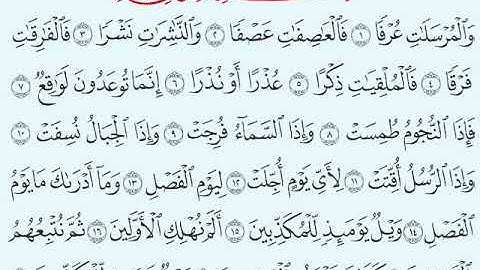 وَٱلْمُرْسَلَٰتِ عُرْفًا ١ فَٱلْعَٰصِفَٰتِ عَصْفًا ٢ وَٱلنَّٰشِرَٰتِ نَشْرًا ٣ فَٱلْفَٰرِقَٰتِ
فَرْقًا ٤ فَٱلْمُلْقِيَٰتِ ذِكْرًا ٥ عُذْرًا أَوْ نُذْرًا ٦ إِنَّمَا تُوعَدُونَ لَوَٰقِعٌ ٧
فَإِذَا ٱلنُّجُومُ طُمِسَتْ ٨ وَإِذَا ٱلسَّمَآءُ فُرِجَتْ ٩ وَإِذَا ٱلْجِبَالُ نُسِفَتْ ١٠
وَإِذَا ٱلرُّسُلُ أُقِّتَتْ ١١ لِأَيِّ يَوْمٍ أُجِّلَتْ ١٢ لِيَوْمِ ٱلْفَصْلِ ١٣ وَمَآ أَدْرَىٰكَ مَا يَوْمُ
ٱلْفَصْلِ ١٤ وَيْلٌ يَوْمَئِذٍ لِّلْمُكَذِّبِينَ ١٥ أَلَمْ نُهْلِكِ ٱلْأَوَّلِينَ ١٦ ثُمَّ نُتْبِعُهُمُ